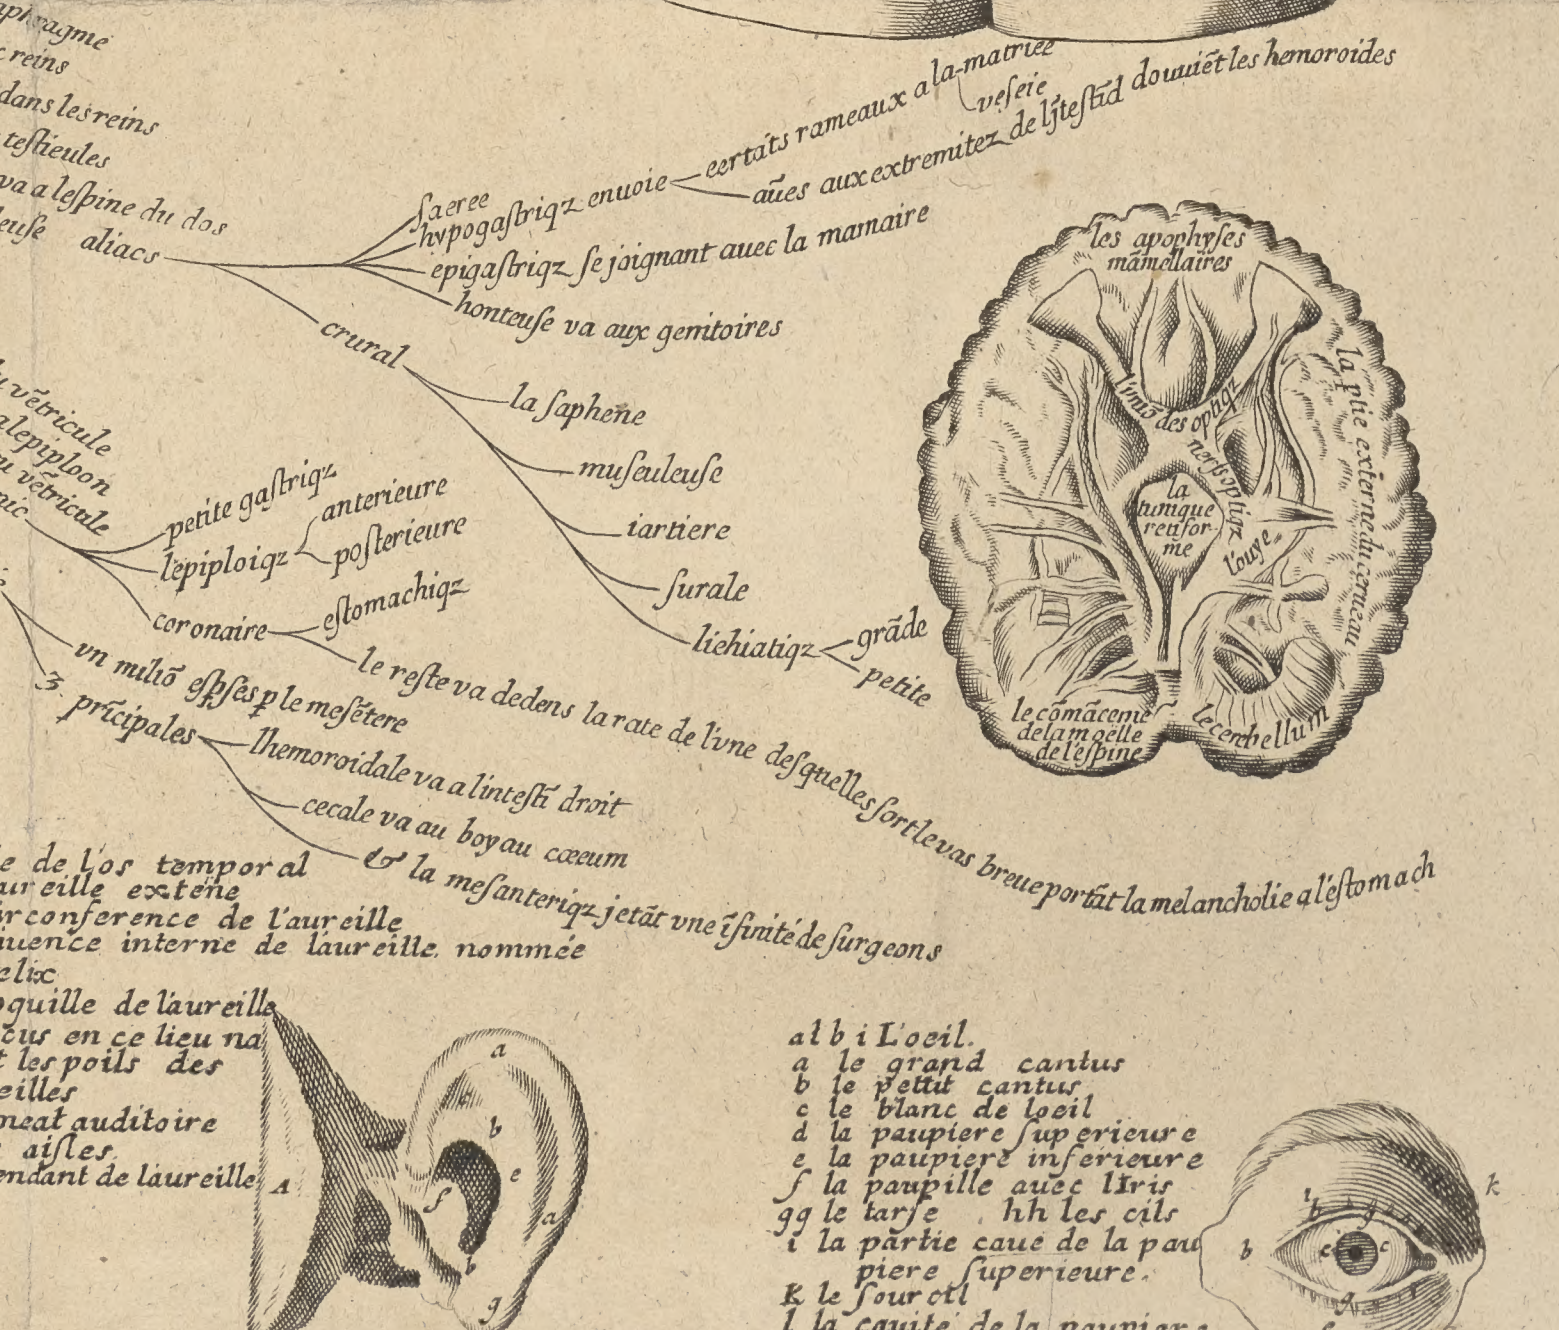 aphragme
reins
dans les reins
testieules
va a lespine du dos
leuse aliacs
saeree
hypogastriqz enuoie
eertaīs rameaux a la matriee
veseie
aūes aux extremitez de lītestīd douuiēt les hemoroides
epigastriqz se joignant auec la mamaire
honteuse va aux genitoires
crural
la saphene
museuleuse
iartiere
surale
liehiatiqz
grāde
petite
vētricule
alepiploon
vētricule
petite gastriqz
lepiploiqz
anterieure
posterieure
coronaire
estomachiqz
le reste va dedens la rate de l'vne desquelles sort le vas breue portāt la melancholie a l'estomach
vn miliō espses p le mesētere
3. prīcipales
lhemoroidale va a l'intestī droit
cecale va au boyau cœeum
& la mesanteriqz jetāt vne īfinité de surgeons
les apophyses
māmellaires
l'vniō des optiqz
nerfs optiqz
la ptie externe du cerueau
la
tunique
retifor-
me
l'ouye
le cōmāceme
de la moëlle
de l'espine
le cerebellum
e de l'os temporal
aureille extēne
irconference de l'aureille
inence interne de l'aureille. nommée
elix
oquille de l'aureille
cus en ce lieu na
t les poils des
eilles
meat auditoire
aisles.
endant de laureille
A
a
c
b
e
f
a
b
g
a l b i L'oeil.
a le grand cantus
b le petit cantus
c le blanc de loeil
d la paupiere superieure
e la paupiere inferieure
f la paupille auec lIris
gg le tarse . hh les cils
i la partie caue de la pau
piere superieure.
K le sourcil
l la cauité de la paupiere
k
i
h
g
b
c
c
g
e